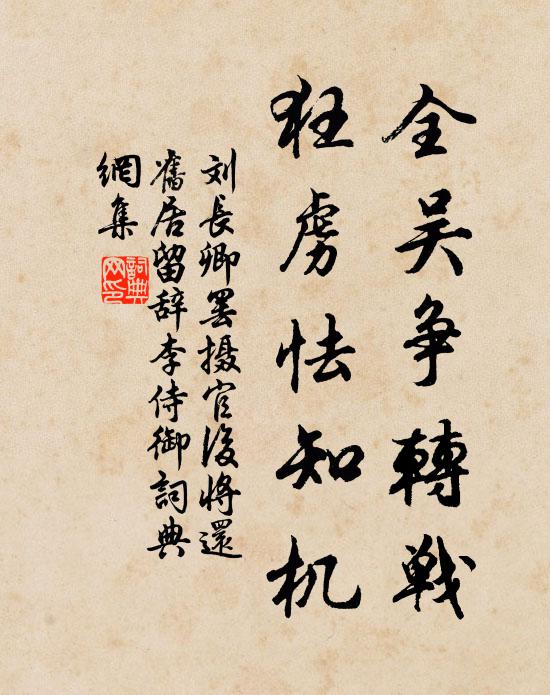 全吴争轉戦
狂虏怯知机
刘長卿罢摄官後将還
舊居留辞李侍御詞典
網集
詞典
网印